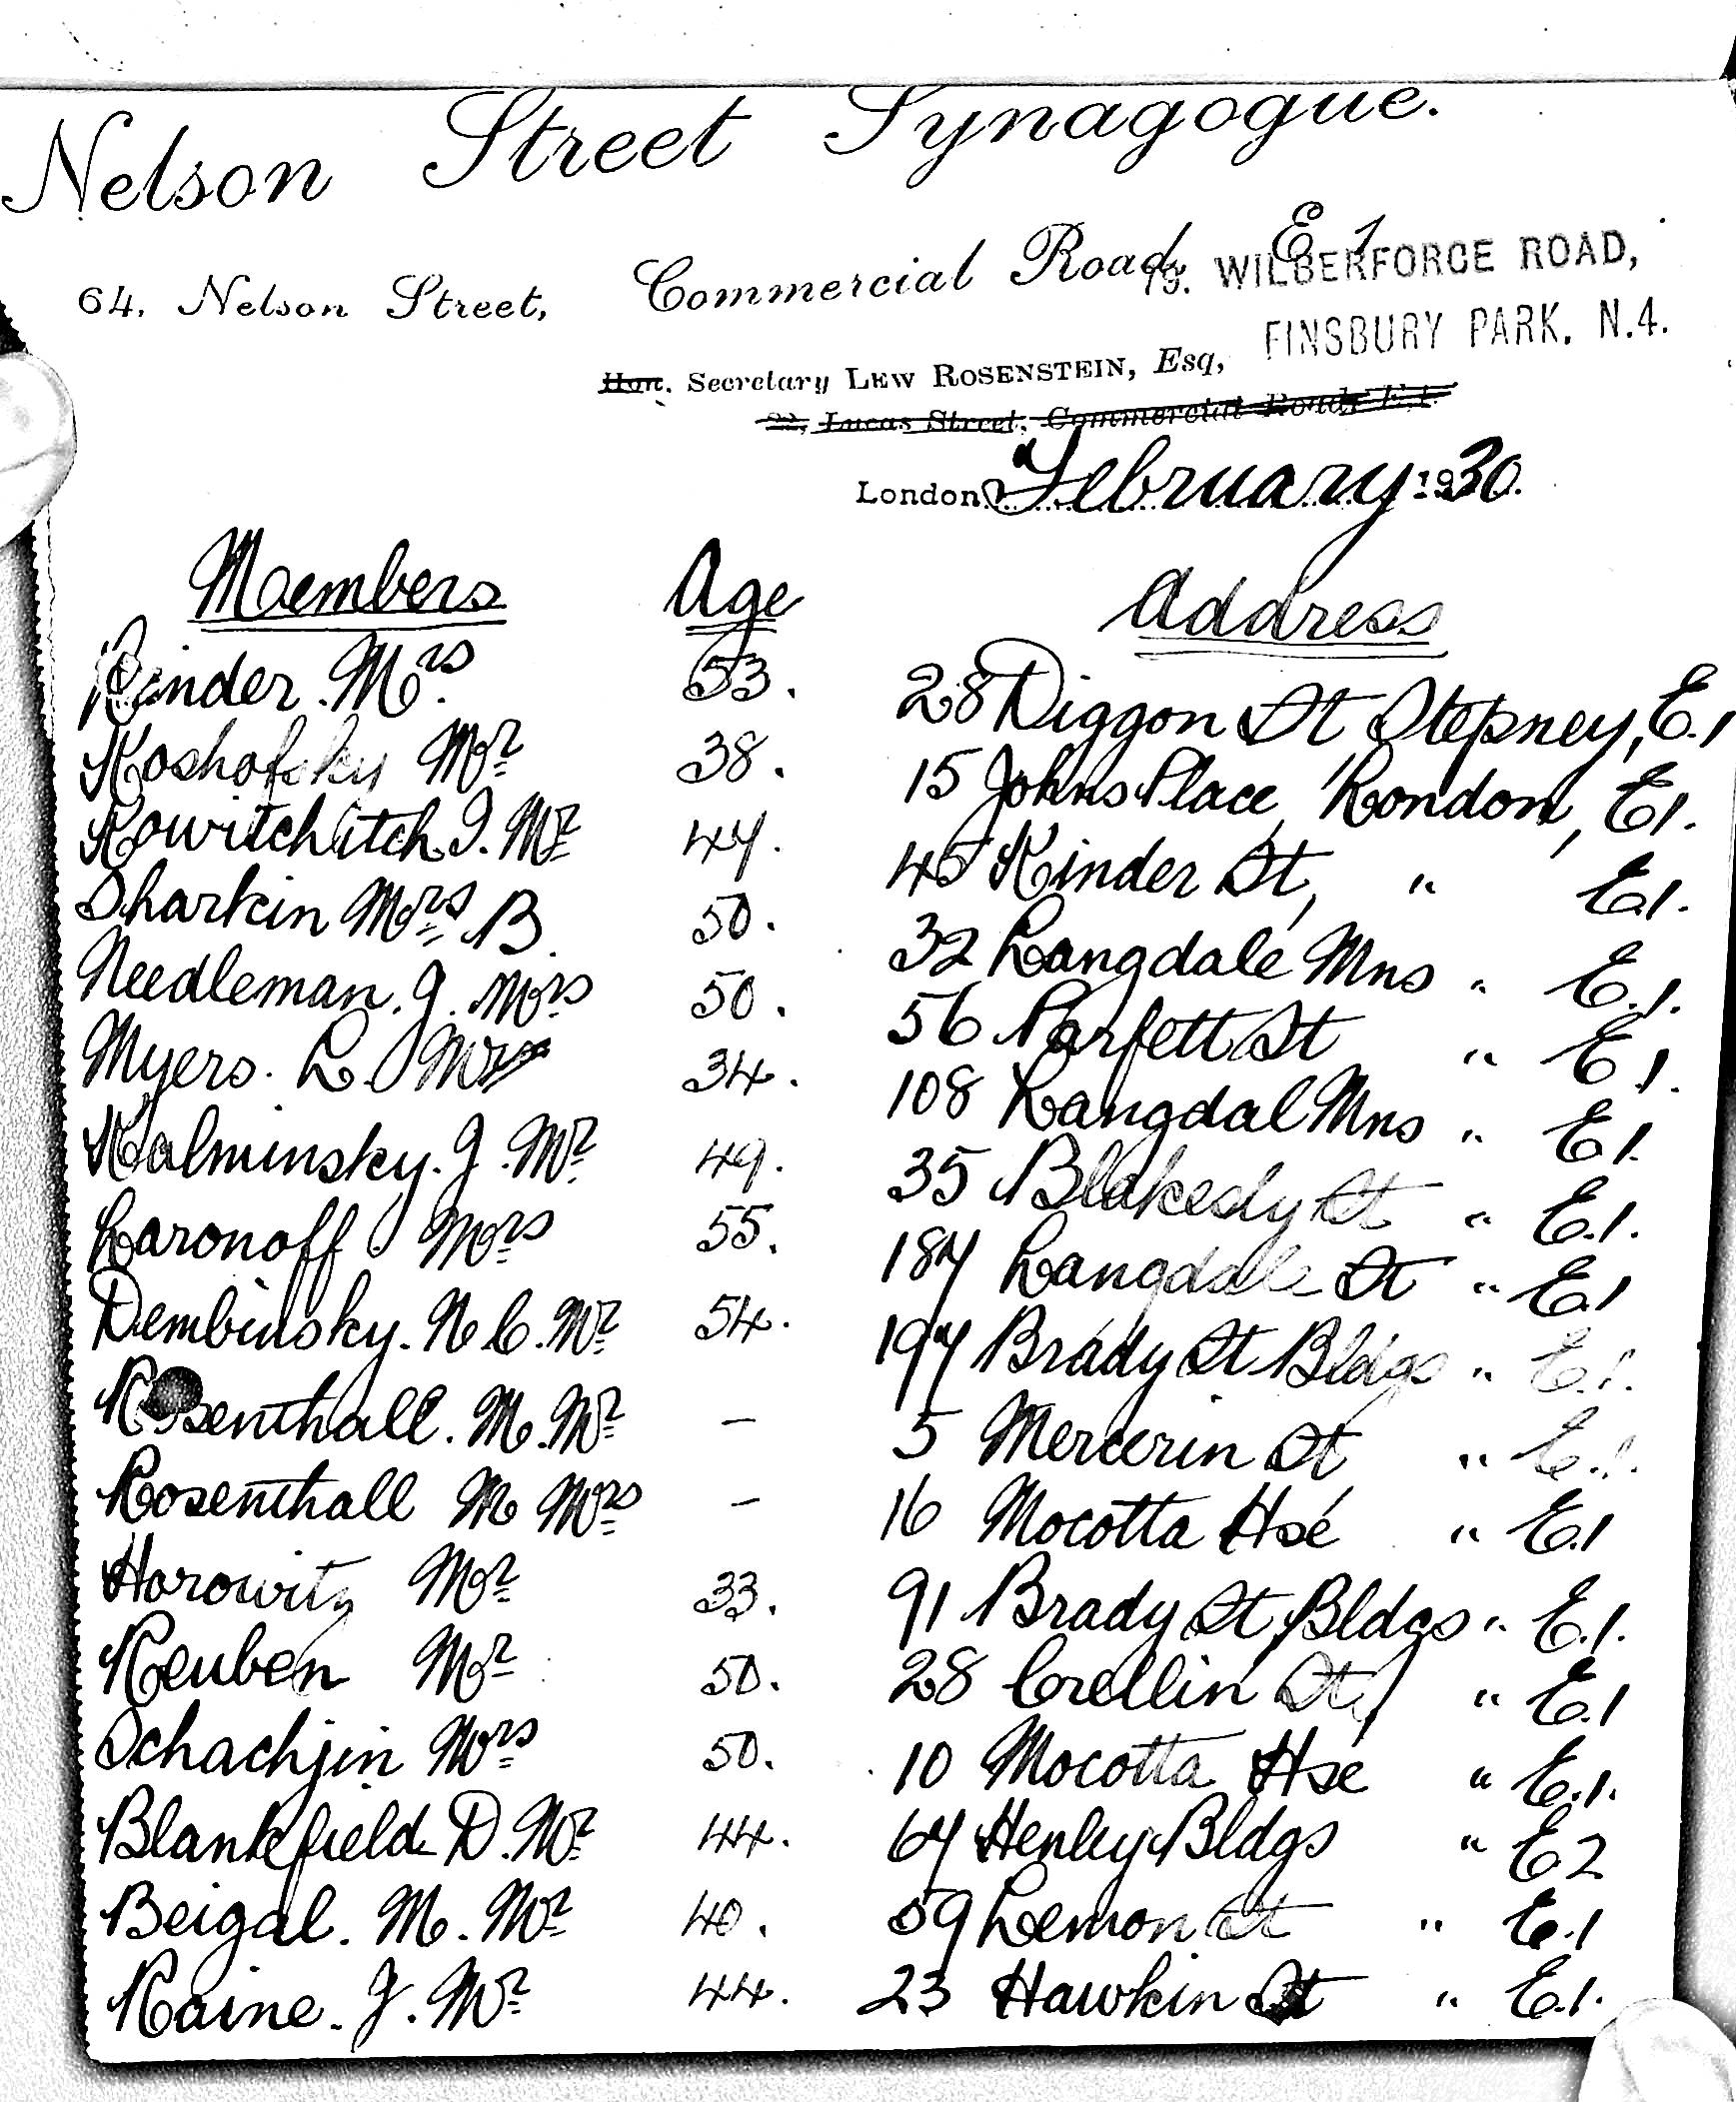 Nelson Street Synagogue.
64, Nelson Street, Commercial Road, E 1
75. WILBERFORCE ROAD,
FINSBURY PARK, N.4.
Hon. Secretary LEW ROSENSTEIN, Esq,
22, Lucas Street, Commercial Road, E.1.
London February 1930.
Members Age Address
Kinder Mrs. 53. 28 Diggon St Stepney, E.1
Koshofsky Mr 38. 15 Johns Place, London, E1.
Kowitchitch I. Mr 47. 45 Kinder St, " E.1.
Sharkin Mrs B. 50. 32 Langdale Mns " E.1.
Needleman. J. Mrs 50. 56 Parfett St " E.1.
Myers. L. Mr 34. 108 Langdal Mns " E1.
Kalminsky. J. Mr 49. 35 Blakesly St " E.1.
Laronoff Mrs 55. 187 Langdale St " E.1
Dembinsky. N C. Mr 54. 197 Brady St Bldgs " E.1.
Rosenthall. M. Mr - 5 Mercerin St " E.1.
Rosenthall M Mrs - 16 Mocotta Hse " E.1
Horowitz Mr 33. 91 Brady St Bldgs " E.1.
Reuben Mr 50. 28 Crellin St, " E.1
Schachjin Mrs 50. 10 Mocotta Hse " E.1.
Blankfield D. Mr 44. 67 Henley Bldgs " E 2
Beigal. M. Mr 40. 59 Lemon St " E.1
Raine. J. Mr 44. 23 Hawkin St " E.1.